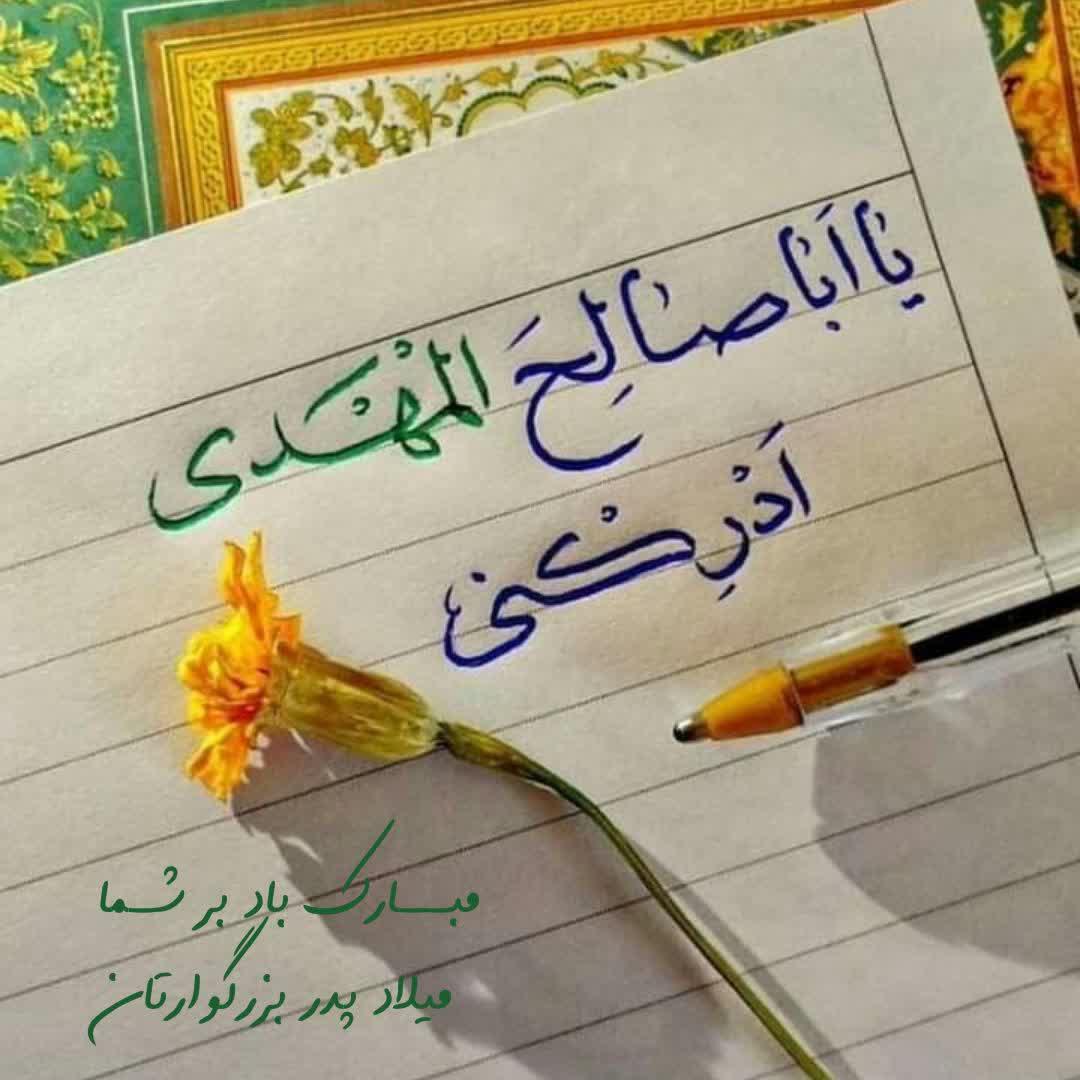 یا اَبا صالِحَ المْهْدَی
اَدْرِکْنی
مبارک باد بر شما
میلاد پدر بزرگوارتان